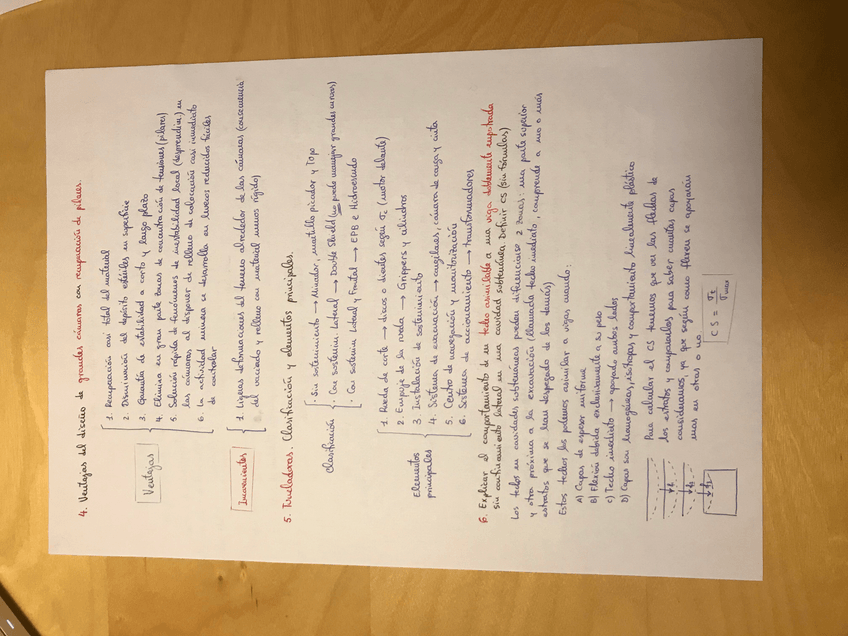 4. Ventajas del diseño de grandes cámaras con recuperación de pilares.
Ventajas
1. Recuperación casi total del material
2. Disminución del depósito estériles en superficie
3. Garantía de estabilidad a corto y largo plazo
4. Elimina en gran parte zonas de concentración de tensiones (pilares)
5. Solución rápida de fenómenos de inestabilidad local (desprendim) en
las cámaras, al disponer de relleno de colocación casi inmediato
6. La actividad minera se desarrolla en huecos reducidos fáciles
de controlar
Inconvenientes
1. Ligeras deformaciones del terreno alrededor de las cámaras (consecuencia
del vaciado y relleno con material menos rígido)
5. Tuneladoras. Clasificación y elementos principales.
Clasificación
· Sin sostenimiento → Minador, martillo picador y Topo
· Con sostenim Lateral → Double Shield (no puede manejar grandes curvas)
· Con sostenim Lateral y Frontal → EPB e Hidroescudo
Elementos
principales
1. Rueda de corte → discos o dientes según σc (motor delante)
2. Empuje de la rueda → Grippers y cilindros
3 Instalación de sostenimiento
4. Sistema de evacuación → cangilones, cámara de carga y cinta
5. Centro de navegación y monitorización
6. Sistema de accionamiento → transformadores
6. Explicar el comportamiento de un techo asimilable a una viga doblemente empotrada
sin confinamiento lateral en una cavidad subterránea, definir CS (sin fórmulas)
Los techos en cavidades subterráneas pueden diferenciarse 2 zonas: una parte superior
y otra próxima a la excavación (llamada techo inmediato, comprende a uno o más
estratos que se han despegado de los demás)
Estos techos los podemos asimilar a vigas cuando:
A) Capas de espesor uniforme
B) Flexión debida exclusivamente a su peso
C) Techo inmediato → apoyado ambos lados
D) Capas son homogéneas, isótropas y comportamiento linealmente plástico
Para calcular el CS tenemos que ver las flechas de
los estratos y compararlas, para saber cuantas capas
consideramos, ya que según como flecten se apoyaran
unas en otras o no
CS = σt / σmax